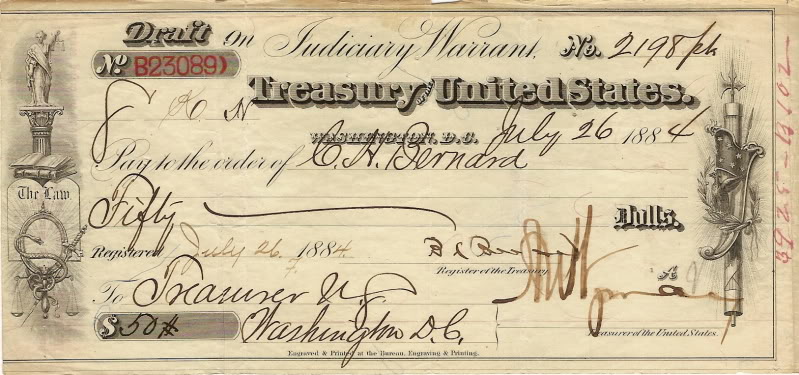 Draft on Judiciary Warrant. No. 2198
No. B23089
Treasury of the United States.
WASHINGTON, D.C. July 26 1884
Pay to the order of C. H. Bernard
The Law
Fifty Dolls.
Registered July 26 1884
Register of the Treasury
To Treasurer U.S.
$ 50
Washington D.C.
Treasurer of the United States.
Engraved & Printed at the Bureau, Engraving & Printing.